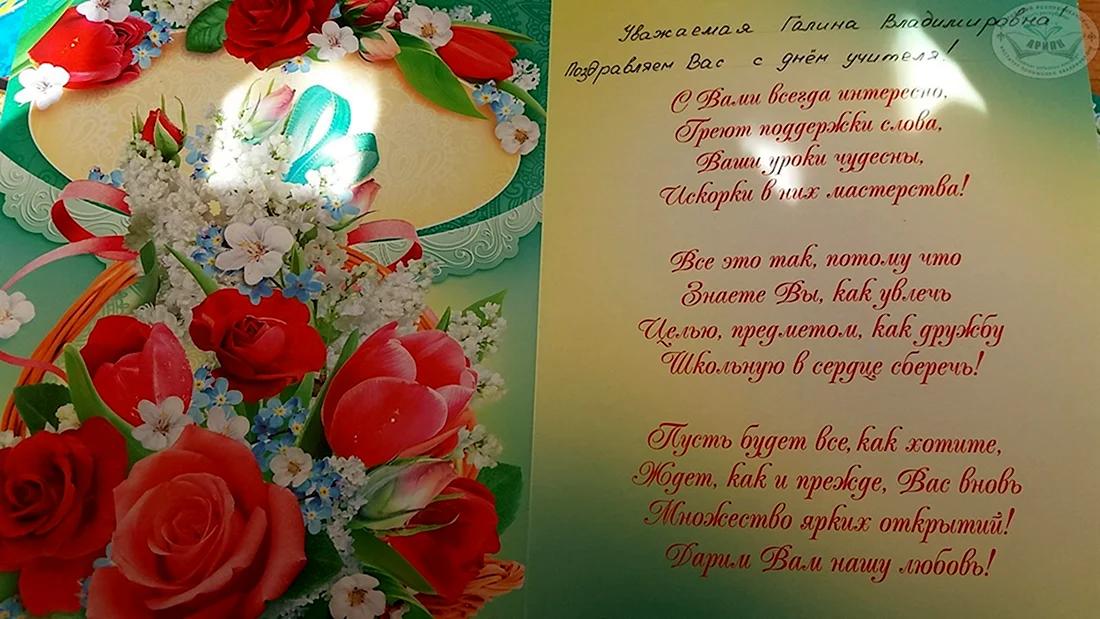 Уважаемая Галина Владимировна!
Поздравляем Вас с днём учителя!
С Вами всегда интересно,
Греют поддержки слова,
Ваши уроки чудесны,
Искорки в них мастерства!
Все это так, потому что
Знаете Вы, как увлечь
Целью, предметом, как дружбу
Школьную в сердце сберечь!
Пусть будет все, как хотите,
Ждет, как и прежде, Вас вновь
Множество ярких открытий!
Дарим Вам нашу любовь!